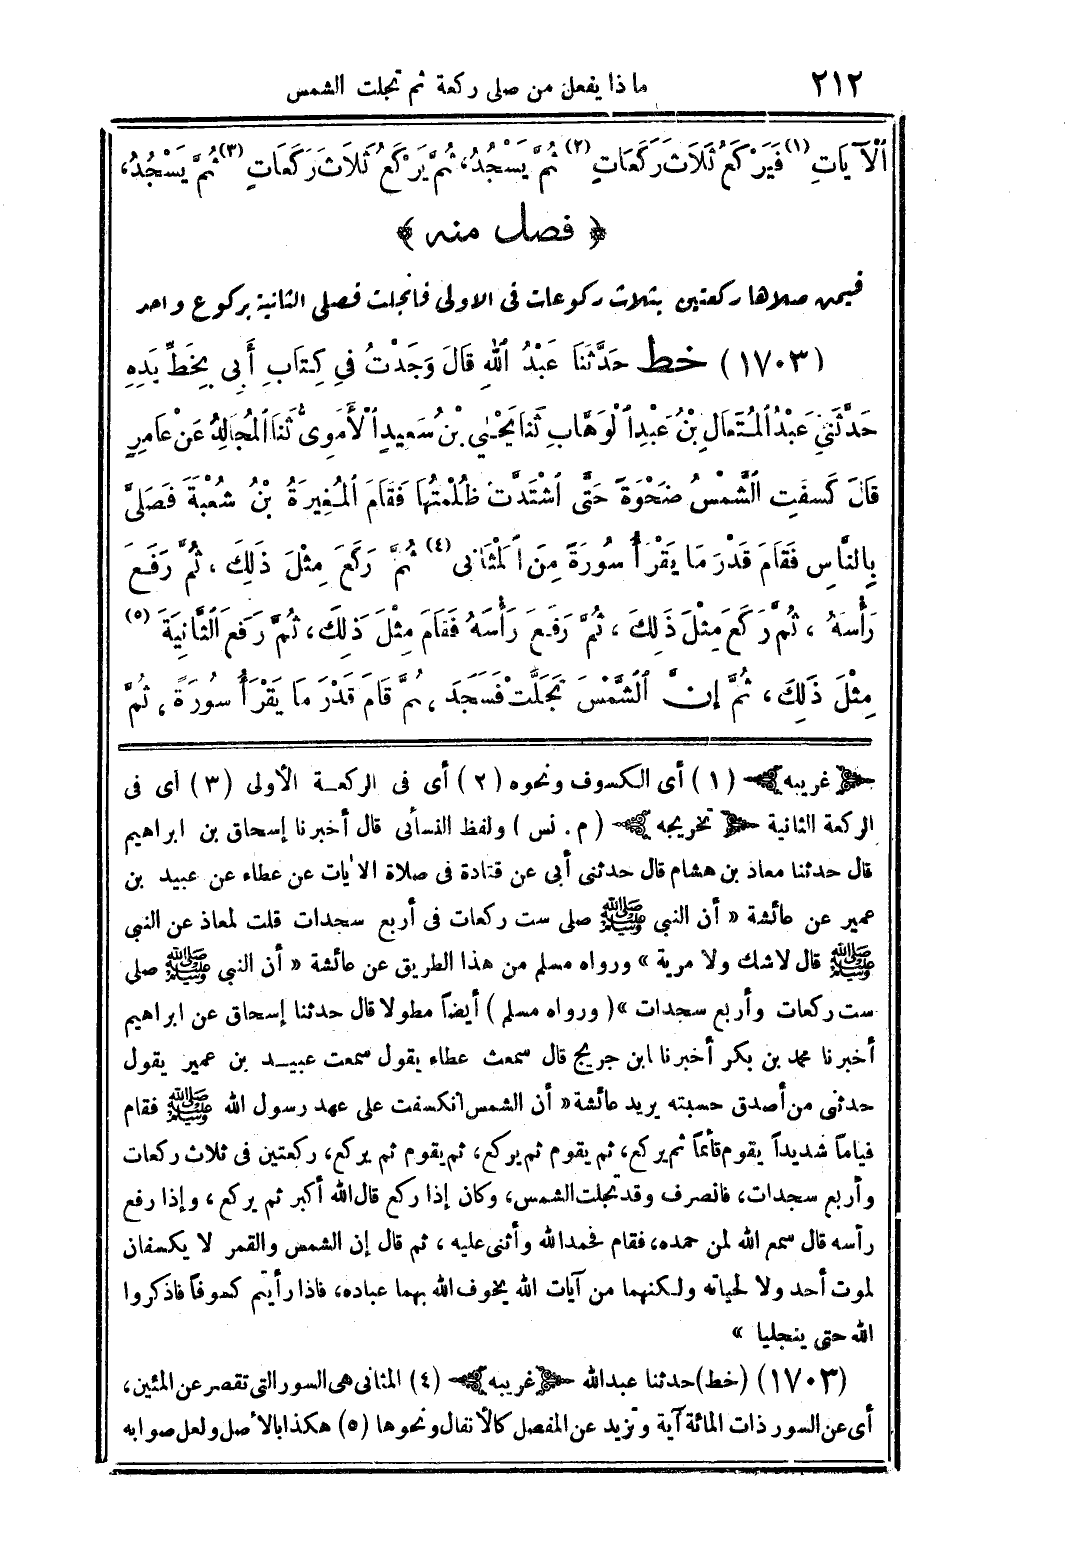 ٢١٢ ماذا يفعل من صلى ركعة ثم تجلت الشمس
ٱلْآيَاتِ (١) فَيَرْكَعُ ثَلَاثَ رَكَعَاتٍ (٢) ثُمَّ يَسْجُدُ، ثُمَّ يَرْكَعُ ثَلَاثَ رَكَعَاتٍ (٣) ثُمَّ يَسْجُدُ،
﴿ فصل منه ﴾
فيمن صلاها ركعتين بثلاث ركوعات فى الاولى فانجلت فصلى الثانية بركوع واحد
(١٧٠٣) خط حَدَّثَنَا عَبْدُ ٱللهِ قَالَ وَجَدْتُ فِي كِتَابِ أَبِى بِخَطِّ يَدِهِ
حَدَّثَنِى عَبْدُ ٱلْمُتَعَالِ بْنُ عَبْدِ ٱلْوَهَّابِ ثَنَا يَحْيٰى بْنُ سَعِيدٍ ٱلْأَمَوِىُّ ثَنَا ٱلْمُجَالِدُ عَنْ عَامِرٍ
قَالَ كَسَفَتِ ٱلشَّمْسُ ضَحْوَةً حَتَّى ٱشْتَدَّتْ ظُلْمَتُهَا فَقَامَ ٱلْمُغِيرَةُ بْنُ شُعْبَةَ فَصَلَّى
بِالنَّاسِ فَقَامَ قَدْرَ مَا يَقْرَأُ سُورَةً مِنَ ٱلْمَثَانِى (٤) ثُمَّ رَكَعَ مِثْلَ ذَلِكَ ، ثُمَّ رَفَعَ
رَأْسَهُ ، ثُمَّ رَكَعَ مِثْلَ ذَلِكَ ، ثُمَّ رَفَعَ رَأْسَهُ فَقَامَ مِثْلَ ذَلِكَ، ثُمَّ رَفَعَ ٱلثَّانِيَةَ (٥)
مِثْلَ ذَلِكَ ، ثُمَّ إِنَّ ٱلشَّمْسَ تَجَلَّتْ فَسَجَدَ ، ثُمَّ قَامَ قَدْرَ مَا يَقْرَأُ سُورَةً ، ثُمَّ
﴿غريبه﴾ (١) أى الكسوف ونحوه (٢) أى فى الركعة الأولى (٣) أى فى
الركعة الثانية ﴿تخريجه﴾ (م . نس) ولفظ النسأنى قال أخبرنا إسحاق بن ابراهيم
قال حدثنا معاذ بن هشام قال حدثنى أبى عن قتادة فى صلاة الآيات عن عطاء عن عبيد بن
عمير عن عائشة « أن النبي ﷺ صلى ست ركعات فى أربع سجدات قلت لمعاذ عن النبي
ﷺ قال لاشك ولا مرية » ورواه مسلم من هذا الطريق عن عائشة « أن النبي ﷺ صلى
ست ركعات وأربع سجدات »( ورواه مسلم ) أيضاً مطولا قال حدثنا إسحاق عن ابراهيم
أخبرنا محمد بن بكر أخبرنا ابن جريج قال سمعت عطاء يقول سمعت عبيـد بن عمير يقول
حدثنى من أصدق حسبته يريد عائشة« أن الشمس انكسفت على عهد رسول الله ﷺ فقام
قياماً شديداً يقوم قائماً ثم يركع، ثم يقوم ثم يركع، ثم يقوم ثم يركع، ركعتين فى ثلاث ركعات
وأربع سجدات، فانصرف وقد تجلت الشمس، وكان إذا ركع قال الله أكبر ثم يركع ، وإذا رفع
رأسه قال سمع الله لمن حمده، فقام فحمد الله وأثنى عليه ، ثم قال إن الشمس والقمر لا يكسفان
لموت أحد ولا لحياته ولكنهما من آيات الله يخوف الله بهما عباده، فاذا رأيتم كسوفاً فاذكروا
الله حتى ينجليا »
(١٧٠٣) (خط) حدثنا عبدالله ﴿غريبه﴾ (٤) المثانى هى السور التى تقصر عن المئين،
أى عن السور ذات المائة آية وتزيد عن المفصل كالأنفال ونحوها (٥) هكذا بالأصل ولعل صوابه